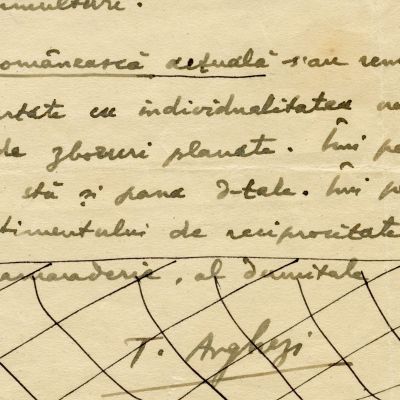 multură.
românească actuală s'au rem
rtate cu individualitatea
de zboruri planate. Îmi pa
stă și pana d-tale. Îmi p
timentului de reciprocitate
amaraderie, al dumitale
T. Arghezi